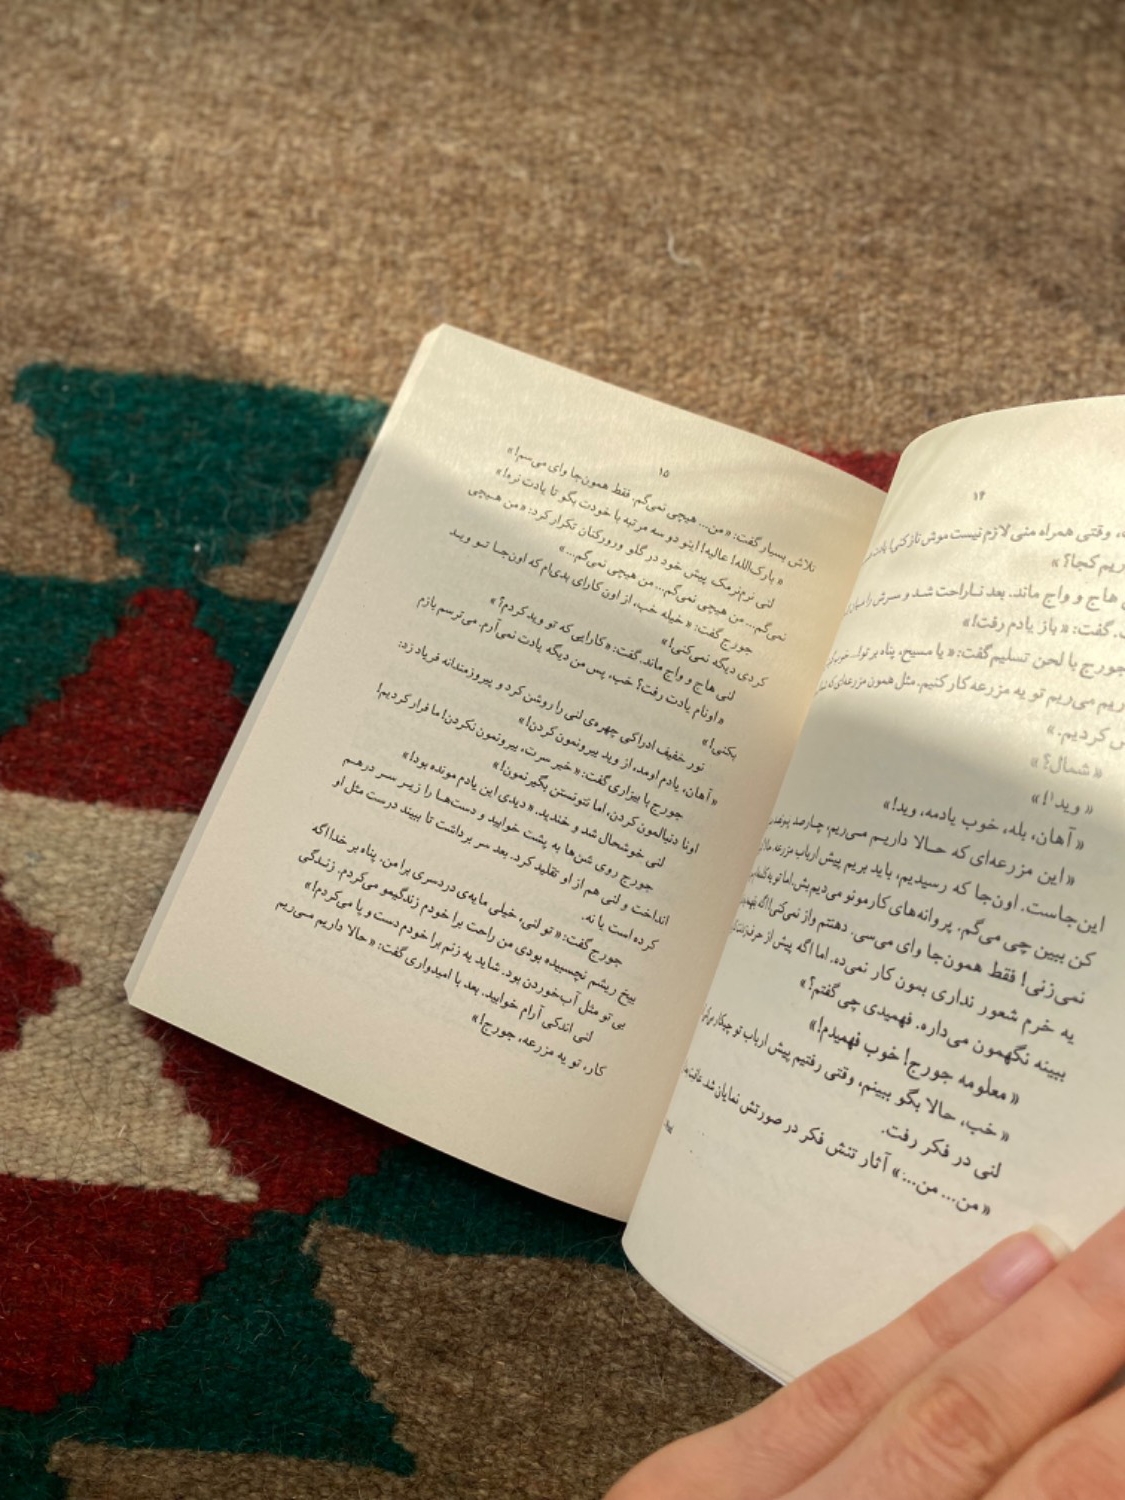 ۱۴
وقتی همراه منی لازم نیست موش
ریم کجا؟»
هاج و واج ماند. بعد نـاراحت شـد و سرش را
گفت: «باز یادم رفت!»
جورج با لحن تسلیم گفت: «یا مسیح، پناه بر تو!...
ریم می‌ریم تو یه مزرعه کار کنیم. مثل همون مزرعه‌ای که
کردیم.»
«شمال؟»
«وید!»
«آهان، بله، خوب یادمه، وید!»
«این مزرعه‌ای که حـالا داریـم مـی‌ریم، چـارصد
این جاست. اون‌جا که رسیدیم، باید بریم پیش ارباب مزرعه.
کن ببین چی می‌گم. پروانه‌های کارمونو می‌دیم بش. اما تو یه
نمی‌زنی! فقط همون‌جا وای می‌سی. دهنتم واز نمی‌کنی! اگه
یه خرم شعور نداری بمون کار نمی‌ده. اما اگه پیش از حرف
ببینه نگهمون می‌داره. فهمیدی چی گفتم؟»
«معلومه جورج! خوب فهمیدم!»
«خب، حالا بگو ببینم، وقتی رفتیم پیش ارباب تو چیکار
لنی در فکر رفت.
«من... من...» آثار تنش فکر در صورتش نمایان شد.
۱۵
تلاش بسیار گفت: «من... هیچی نمی‌گم. فقط همون‌جا وای می‌سم!»
«بارک‌الله! عالیه! اینو دو سه مرتبه با خودت بگو تا یادت نره!»
لنی نرم‌نرمک پیش خود در گلو ورورکنان تکرار کرد: «من هـیچی
نمی‌گم... من هیچی نمی‌گم... من هیچی نمی‌گم...»
جورج گفت: «خیله خب، از اون کارای بدی‌ام که اون‌جـا تـو ویـد
کردی دیگه نمی‌کنی!»
لنی هاج و واج ماند. گفت: «کارایی که تو وید کردم؟»
«اونام یادت رفت؟ خب، پس من دیگه یادت نمی‌آرم. می‌ترسم بازم
بکنی!»
نور خفیف ادراکی چهره‌ی لنی را روشن کرد و پیروزمندانه فریاد زد:
«آهان، یادم اومد، از وید بیرونمون کردن!»
جورج با بیزاری گفت: «خیر سرت، بیرونمون نکردن! ما فرار کردیم!
اونا دنبالمون کردن، اما نتونستن بگیرنمون!»
لنی خوشحال شد و خندید. «دیدی این یادم مونده بود!»
جورج روی شن‌ها به پشت خوابید و دست‌هـا را زیـر سـر درهـم
انداخت و لنی هم از او تقلید کرد. بعد سر برداشت تا ببیند درست مثل او
کرده است یا نه.
جورج گفت: «تو لنی، خیلی مایه‌ی دردسری برا من. پناه بر خدا اگه
بیخ ریشم نچسبیده بودی من راحت برا خودم زندگیمو می‌کردم. زنـدگی
بی تو مثل آب‌خوردن بود. شاید یه زنم برا خودم دست و پا می‌کردم!»
لنی اندکی آرام خوابید. بعد با امیدواری گفت: «حالا داریم مـی‌ریم
کار، تو یه مزرعه، جورج!»